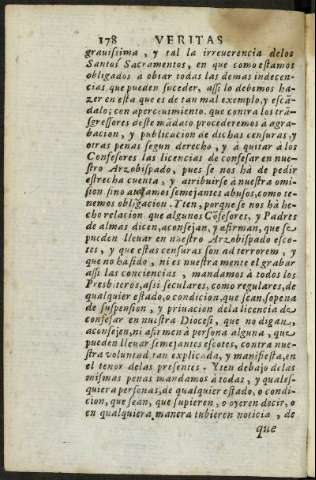 178 VERITAS
grauissima, y tal la irreuerencia delos
Santos Sacramentos, en que como estamos
obligados à obiar todas las demas indecen-
cias que pueden suceder, assi lo debemos ha-
zer en esta que es de tan mal exemplo, y escã-
dalo; con aperceuimiento, que contra los trãs-
gressores deste mãdato procederemos à agra-
bacion, y publicacion de dichas censuras, y
otras penas segun derecho, y à quitar à los
Confesores las licencias de confesar en nues-
tro Arzobispado, pues se nos hà de pedir
estrecha cuenta, y atribuirse à nuestra omi-
sion sino atajamos semejantes abusos, como te-
nemos obligacion. Yten, porque se nos hà he-
cho relacion que algunos Cõfesores, y Padres
de almas dicen, aconsejan, y afirman, que se
pueden lleuar en nuestro Arzobispado esco-
tes, y que estas censuras son ad terrorem, y
que no ha sido, ni es nuestra mente el grabar
assi las conciencias, mandamos à todos los
Presbiteros, assi seculares, como regulares, de
qualquier estado, o condicion, que sean, sopena
de suspension, y priuacion dela licencia de
confesar en nuestra Diocesi, que no digan,
aconsejen, ni afirmen à persona alguna, que
pueden lleuar semejantes escotes, contra nue-
stra voluntad tan explicada, y manifiesta, en
el tenor delas presentes. Yten debajo de las
mismas penas mandamos à todas, y quales-
quiera personas, de qualquier estado, o condi-
cion, que sean, que supieren, o oyeren decir, o
en qualquiera manera tubieren noticia, de
que